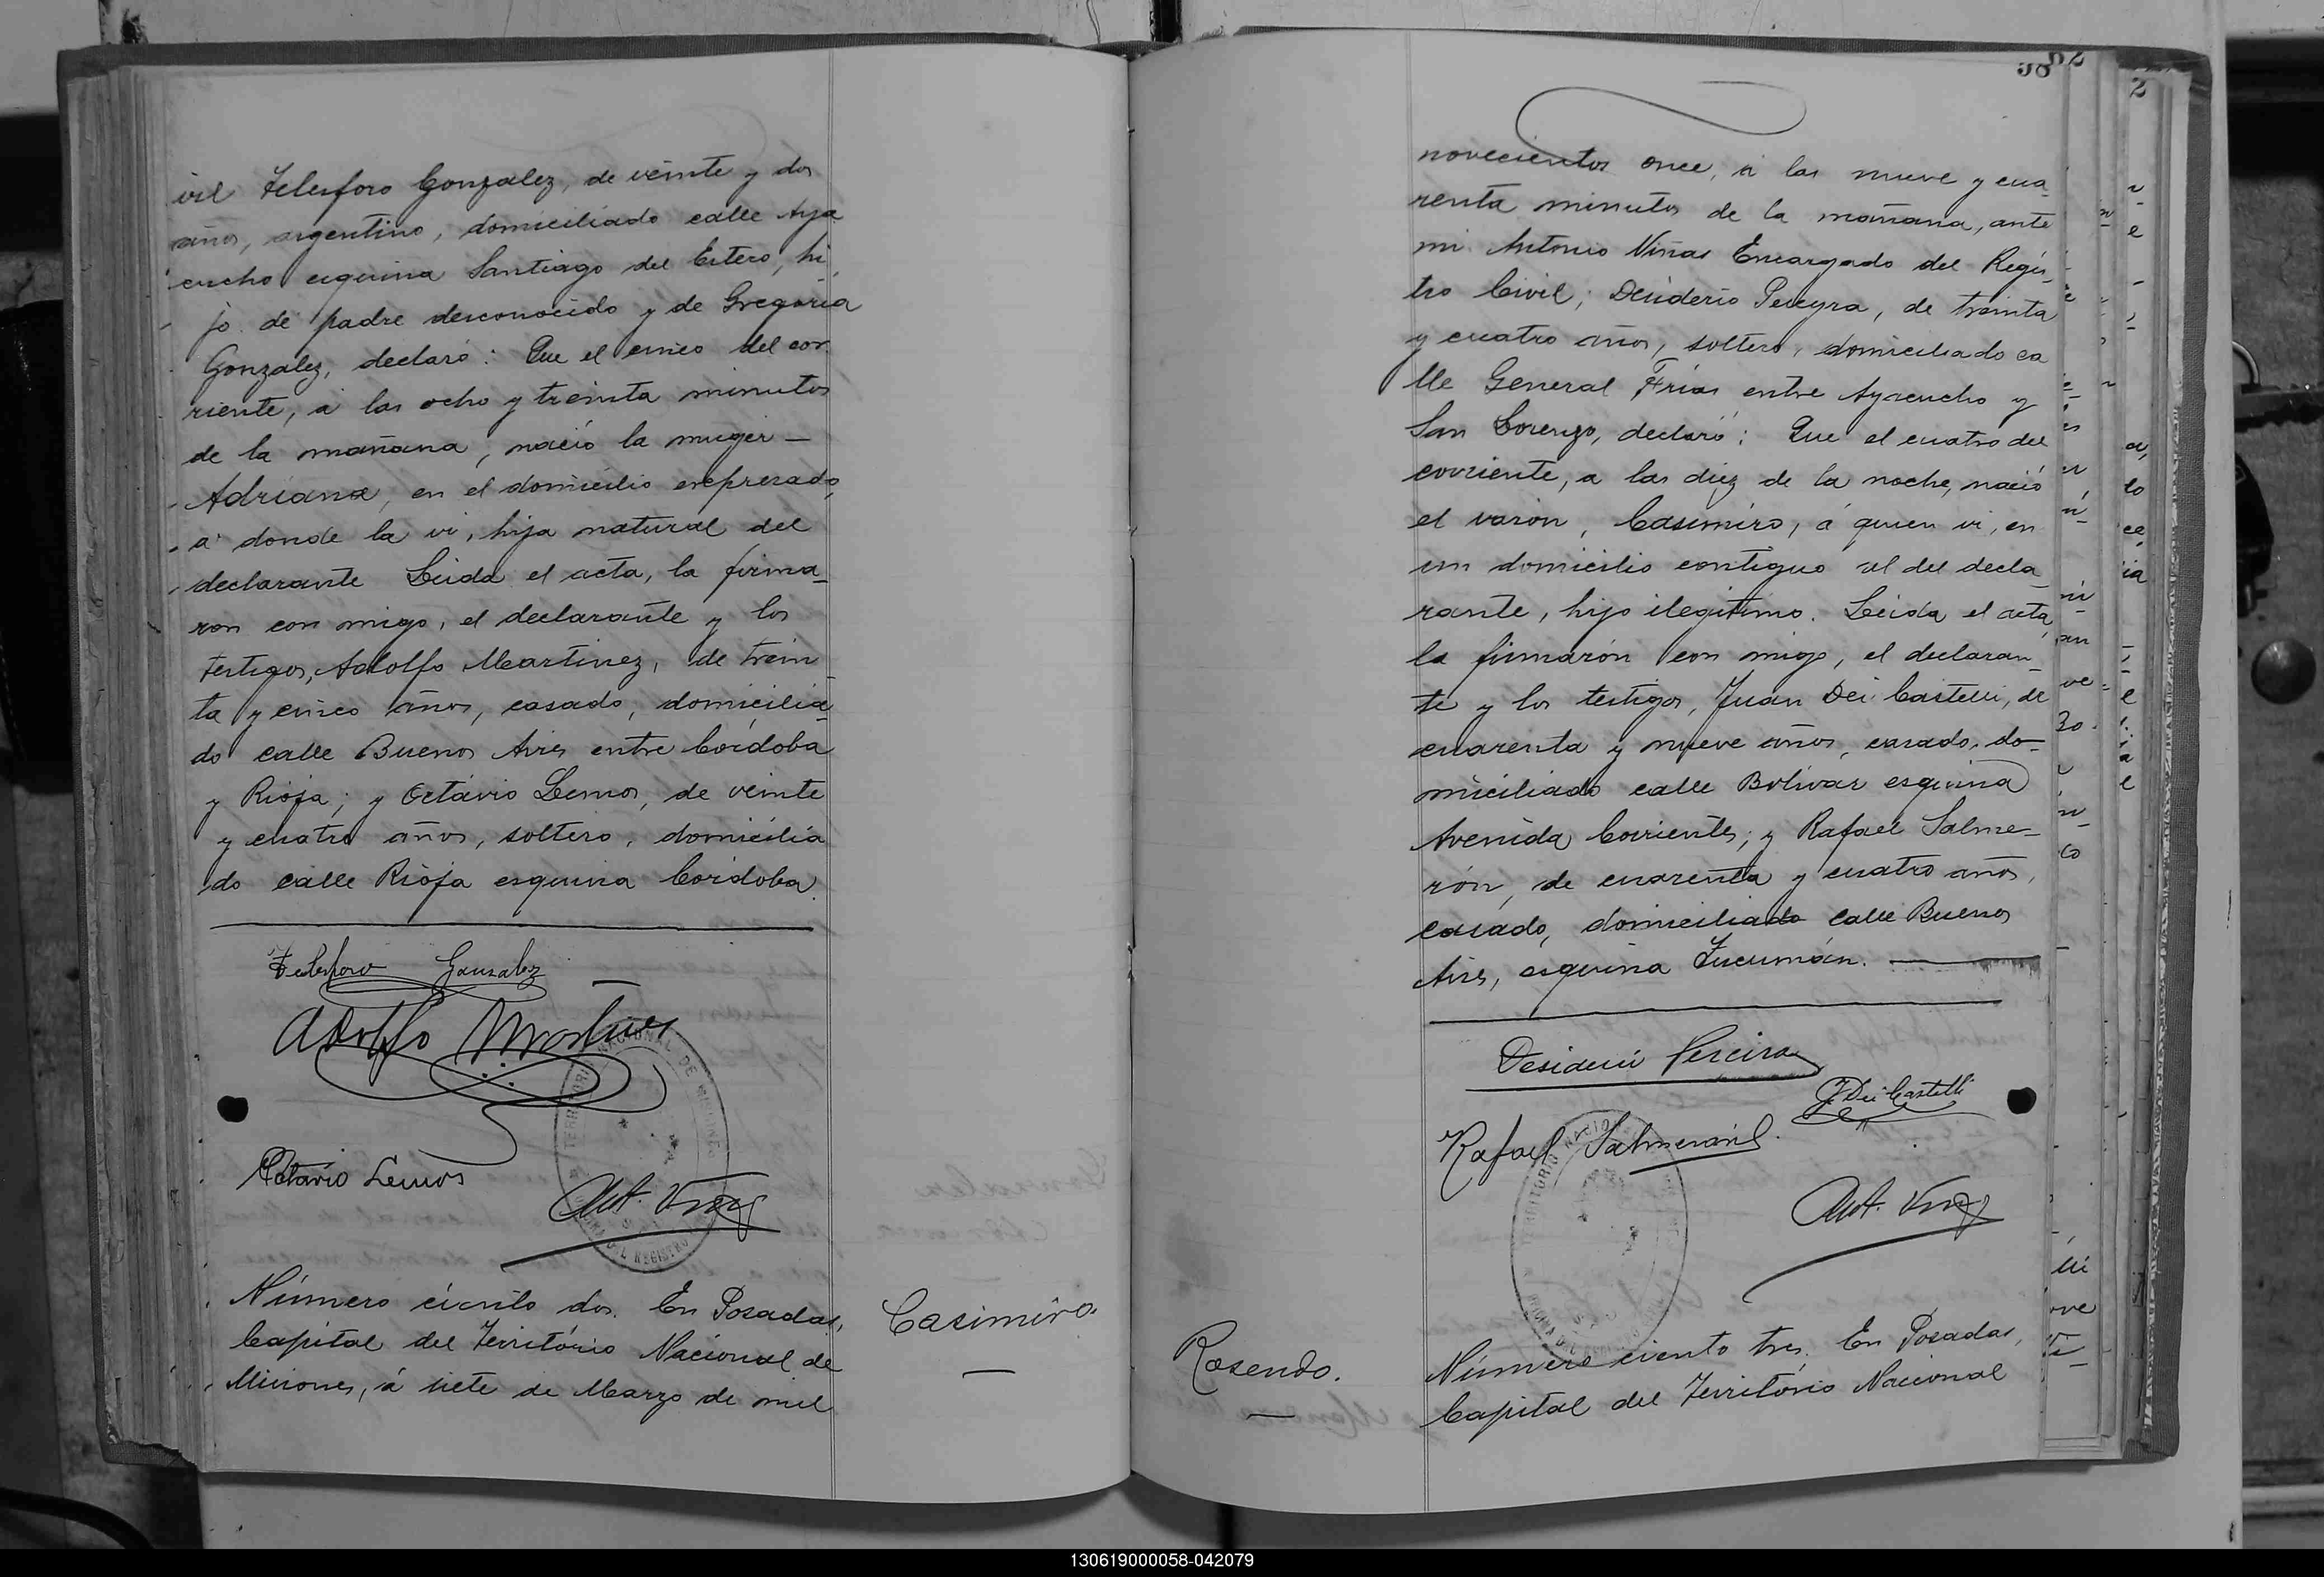 vil Telesforo Gonzalez, de veinte y dos
años, argentino, domiciliado calle Aya
cucho esquina Santiago del Estero, hi
jo de padre desconocido y de Gregoria
Gonzalez, declaró: Que el cinco del cor
riente, á las ocho y treinta minutos
de la mañana, nació la muger —
Adriana, en el domicilio expresado,
á donde la vi, hija natural del
declarante Leida el acta, la firma_
ron con migo, el declarante y los
testigos, Adolfo Martinez, de trein
ta y cinco años, casado, domicilia_
do calle Buenos Aires entre Córdoba
y Rioja; y Octávio Lemos, de veinte
y cuatro años, soltero, domicilia
do calle Rioja esquina Córdoba.
Telesforo Gonzalez
Adolfo Martinez
Octavio Lemos
Ant. Viñas
Número ciento dos. En Posadas,
Capital del Território Nacional de
Misiones, á siete de Marzo de mil
Casimiro.
58
62
2
novecientos once, á las nueve y cua_
renta minutos de la mañana, ante
mi Antonio Viñas Encargado del Regis_
tro Civil; Desiderio Pereyra, de treinta
y cuatro años, soltero, domiciliado ca
lle General Frias entre Ayacucho y
San Lorenzo, declaró: Que el cuatro del
corriente, a las diez de la noche, nació
el varón, Casimiro, á quien vi, en
un domicilio contiguo al del decla_
rante, hijo ilegítimo. Leida el acta,
la firmarón con migo, el declaran_
te y los testigos, Juan Dei Castelli, de
cuarenta y nueve años, casado, do—
miciliado calle Bolivar esquina
Avenida Corrientes; y Rafael Salme—
rón, de cuarenta y cuatro años,
casado, domiciliado calle Buenos
Aires, esquina Tucumán.
Desiderio Pereira
J. Dei Castelli
Rafael Salmerón
Ant. Viñas
Rosendo.
Número ciento tres. En Posadas,
Capital del Território Nacional
130619000058-042079